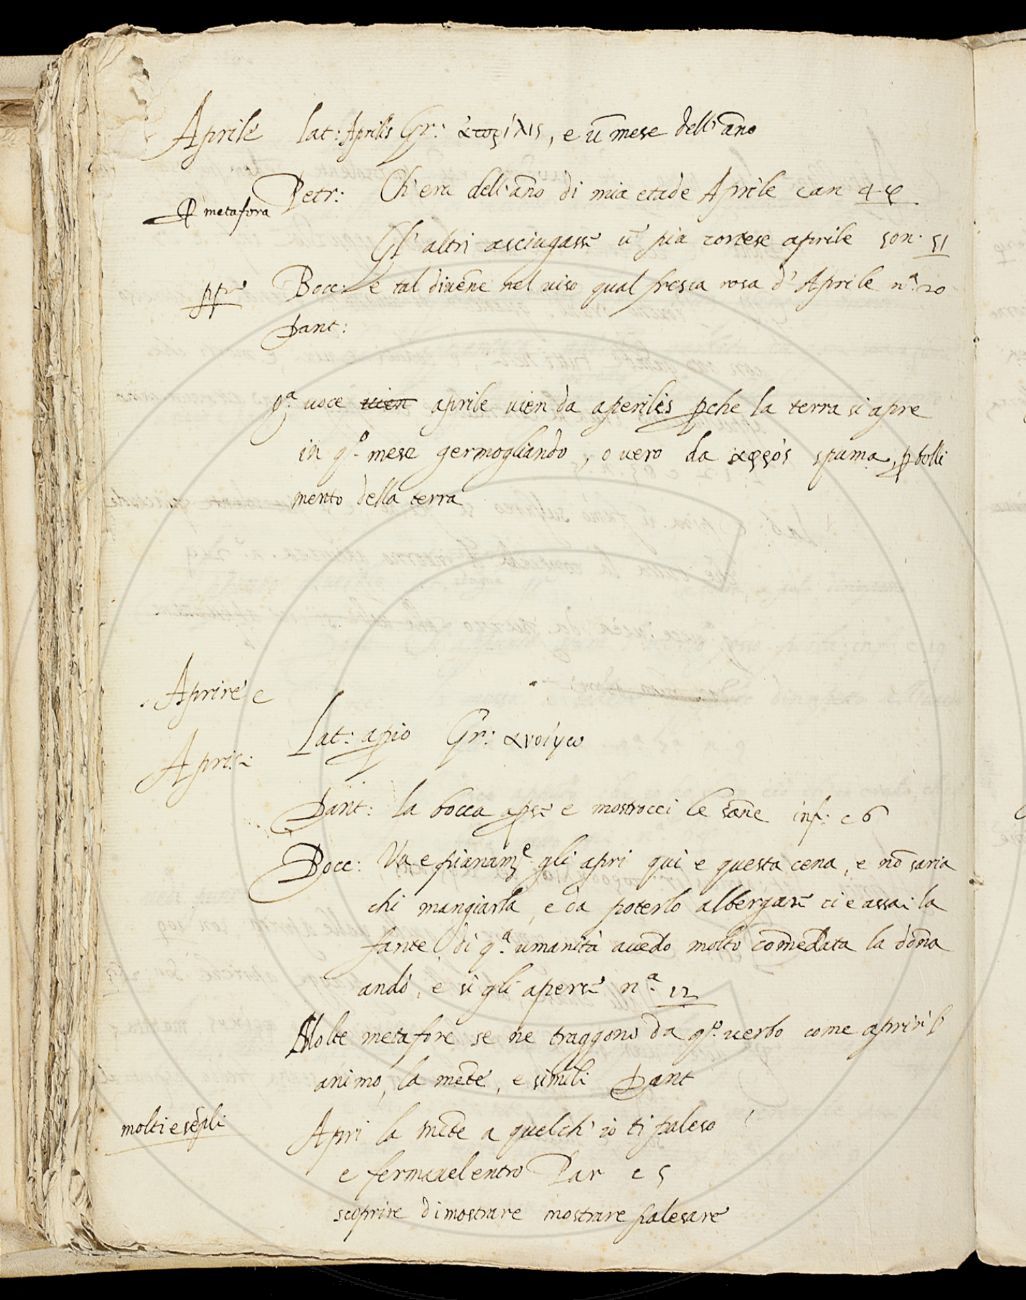 Aprile lat: Aprilis Gr: ἀπρίλις, e ũ mese dell'ãno
Petr: Ch'era dell'ãno di mia etade Aprile can 48
ꝑ metafora
Gl'altri asciugasse ũ più cortese aprile son. 51
ppre Bocc: e tal divẽne nel viso qual fresca rosa d'Aprile n.ª 20
Dant:
q.ª voce vien aprile vien da aperilis ꝑche la terra si apre
in q.º mese germogliando, o vero da ἀφρὸς spuma, ꝑ bolli
mento della terra
Aprire e
Lat: apio Gr: ἀνοίγω
Aprir
Dant: la bocca aperse e mostrocci le sãne inf: c 6
Bocc: Va e pianamẽ gli apri qui e questa cena, e nõ saria
chi mangiarla, e da poterlo albergare ci è assai la
fante di q.ª umanità avẽdo molto cõmẽdata la dõna
andò, e sì gli aperse n.ª 12
Molte metafore se ne traggono da q.º verbo come aprir l'
animo, la mẽte, e simili Dant
molti esẽpli
Apri la mẽte a quelch'io ti paleso
e fermavel entro Par c 5
scoprire dimostrare mostrare palesare